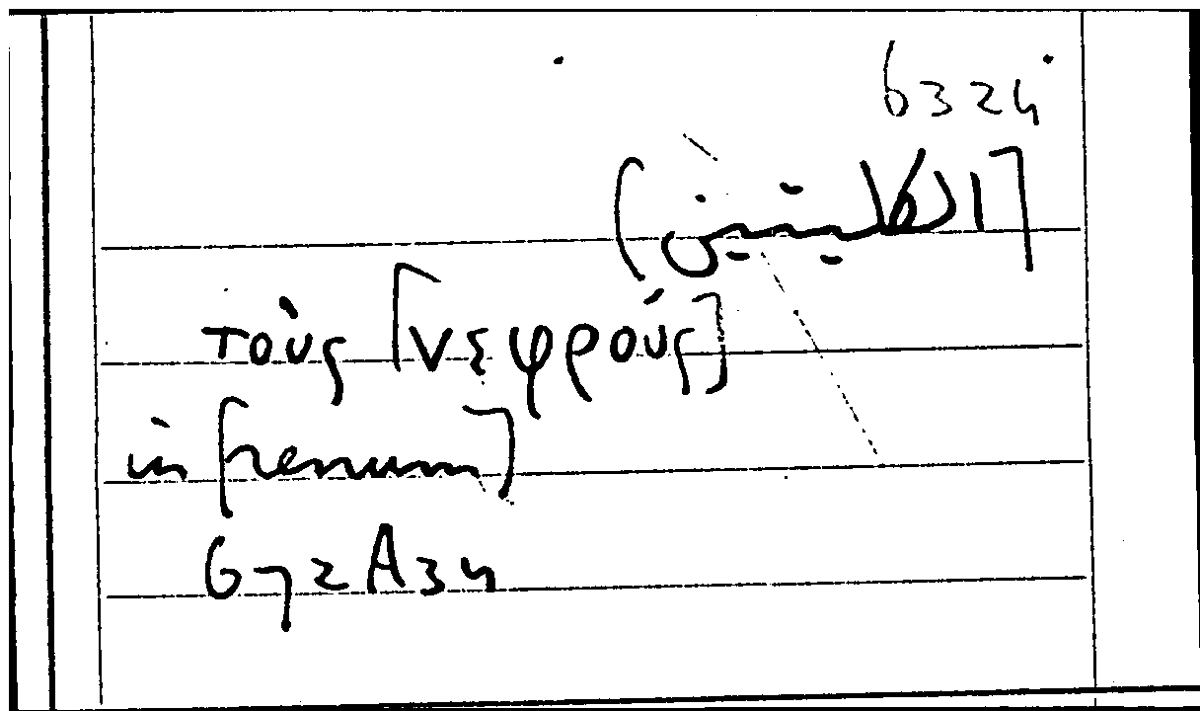 6324
[الكليتين]
τοὺς [νεφρούς]
in [renum]
672A34